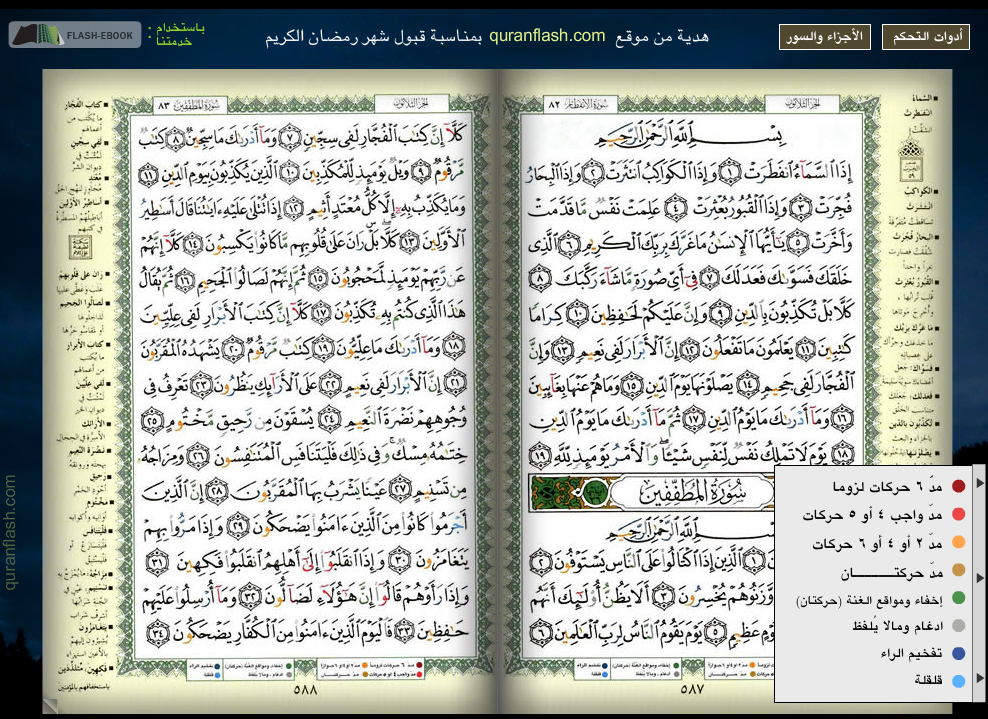 أدوات التحكم
الأجزاء والسور
هدية من موقع quranflash.com بمناسبة قبول شهر رمضان الكريم
باستخدام خدمتنا :
FLASH-EBOOK
الجزء الثلاثون
سورة الانفطار ٨٢
بِسْمِ ٱللَّهِ ٱلرَّحْمَٰنِ ٱلرَّحِيمِ
إِذَا ٱلسَّمَآءُ ٱنفَطَرَتْ ١ وَإِذَا ٱلْكَوَاكِبُ ٱنتَثَرَتْ ٢ وَإِذَا ٱلْبِحَارُ
فُجِّرَتْ ٣ وَإِذَا ٱلْقُبُورُ بُعْثِرَتْ ٤ عَلِمَتْ نَفْسٌ مَّا قَدَّمَتْ
وَأَخَّرَتْ ٥ يَٰٓأَيُّهَا ٱلْإِنسَٰنُ مَا غَرَّكَ بِرَبِّكَ ٱلْكَرِيمِ ٦ ٱلَّذِى
خَلَقَكَ فَسَوَّىٰكَ فَعَدَلَكَ ٧ فِىٓ أَىِّ صُورَةٍ مَّا شَآءَ رَكَّبَكَ ٨
كَلَّا بَلْ تُكَذِّبُونَ بِٱلدِّينِ ٩ وَإِنَّ عَلَيْكُمْ لَحَٰفِظِينَ ١٠ كِرَامًا
كَٰتِبِينَ ١١ يَعْلَمُونَ مَا تَفْعَلُونَ ١٢ إِنَّ ٱلْأَبْرَارَ لَفِى نَعِيمٍ ١٣ وَإِنَّ
ٱلْفُجَّارَ لَفِى جَحِيمٍ ١٤ يَصْلَوْنَهَا يَوْمَ ٱلدِّينِ ١٥ وَمَا هُمْ عَنْهَا بِغَآئِبِينَ
١٦ وَمَآ أَدْرَىٰكَ مَا يَوْمُ ٱلدِّينِ ١٧ ثُمَّ مَآ أَدْرَىٰكَ مَا يَوْمُ ٱلدِّينِ
١٨ يَوْمَ لَا تَمْلِكُ نَفْسٌ لِّنَفْسٍ شَيْـًٔا وَٱلْأَمْرُ يَوْمَئِذٍ لِّلَّهِ ١٩
سُورَةُ المُطَفِّفِينَ
ٱللَّهِ ٱلرَّحْمَٰنِ ٱلرَّحِيمِ
١ ٱلَّذِينَ إِذَا ٱكْتَالُوا۟ عَلَى ٱلنَّاسِ يَسْتَوْفُونَ ٢
وَّزَنُوهُمْ يُخْسِرُونَ ٣ أَلَا يَظُنُّ أُو۟لَٰٓئِكَ أَنَّهُم
عَظِيمٍ ٥ يَوْمَ يَقُومُ ٱلنَّاسُ لِرَبِّ ٱلْعَٰلَمِينَ ٦
٥٨٧
الجزء الثلاثون
سورة المطففين ٨٣
كَلَّآ إِنَّ كِتَٰبَ ٱلْفُجَّارِ لَفِى سِجِّينٍ ٧ وَمَآ أَدْرَىٰكَ مَا سِجِّينٌ ٨ كِتَٰبٌ
مَّرْقُومٌ ٩ وَيْلٌ يَوْمَئِذٍ لِّلْمُكَذِّبِينَ ١٠ ٱلَّذِينَ يُكَذِّبُونَ بِيَوْمِ ٱلدِّينِ ١١
وَمَا يُكَذِّبُ بِهِۦٓ إِلَّا كُلُّ مُعْتَدٍ أَثِيمٍ ١٢ إِذَا تُتْلَىٰ عَلَيْهِ ءَايَٰتُنَا قَالَ أَسَٰطِيرُ
ٱلْأَوَّلِينَ ١٣ كَلَّا بَلْ رَانَ عَلَىٰ قُلُوبِهِم مَّا كَانُوا۟ يَكْسِبُونَ ١٤ كَلَّآ إِنَّهُمْ
عَن رَّبِّهِمْ يَوْمَئِذٍ لَّمَحْجُوبُونَ ١٥ ثُمَّ إِنَّهُمْ لَصَالُوا۟ ٱلْجَحِيمِ ١٦ ثُمَّ يُقَالُ
هَٰذَا ٱلَّذِى كُنتُم بِهِۦ تُكَذِّبُونَ ١٧ كَلَّآ إِنَّ كِتَٰبَ ٱلْأَبْرَارِ لَفِى عِلِّيِّينَ
١٨ وَمَآ أَدْرَىٰكَ مَا عِلِّيُّونَ ١٩ كِتَٰبٌ مَّرْقُومٌ ٢٠ يَشْهَدُهُ ٱلْمُقَرَّبُونَ
٢١ إِنَّ ٱلْأَبْرَارَ لَفِى نَعِيمٍ ٢٢ عَلَى ٱلْأَرَآئِكِ يَنظُرُونَ ٢٣ تَعْرِفُ فِى
وُجُوهِهِمْ نَضْرَةَ ٱلنَّعِيمِ ٢٤ يُسْقَوْنَ مِن رَّحِيقٍ مَّخْتُومٍ ٢٥
خِتَٰمُهُۥ مِسْكٌ وَفِى ذَٰلِكَ فَلْيَتَنَافَسِ ٱلْمُتَنَٰفِسُونَ ٢٦ وَمِزَاجُهُۥ
مِن تَسْنِيمٍ ٢٧ عَيْنًا يَشْرَبُ بِهَا ٱلْمُقَرَّبُونَ ٢٨ إِنَّ ٱلَّذِينَ
أَجْرَمُوا۟ كَانُوا۟ مِنَ ٱلَّذِينَ ءَامَنُوا۟ يَضْحَكُونَ ٢٩ وَإِذَا مَرُّوا۟ بِهِمْ
يَتَغَامَزُونَ ٣٠ وَإِذَا ٱنقَلَبُوٓا۟ إِلَىٰٓ أَهْلِهِمُ ٱنقَلَبُوا۟ فَكِهِينَ ٣١
وَإِذَا رَأَوْهُمْ قَالُوٓا۟ إِنَّ هَٰٓؤُلَآءِ لَضَآلُّونَ ٣٢ وَمَآ أُرْسِلُوا۟ عَلَيْهِمْ
حَٰفِظِينَ ٣٣ فَٱلْيَوْمَ ٱلَّذِينَ ءَامَنُوا۟ مِنَ ٱلْكُفَّارِ يَضْحَكُونَ ٣٤
٥٨٨
مدّ ٦ حركات لزوما
مدّ واجب ٤ أو ٥ حركات
مدّ ٢ أو ٤ أو ٦ حركات
مدّ حركتـــــــان
إخفاء ومواقع الغنة (حركتان)
ادغام ومالا يُلفظ
تفخيم الراء
قلقلة
quranflash.com